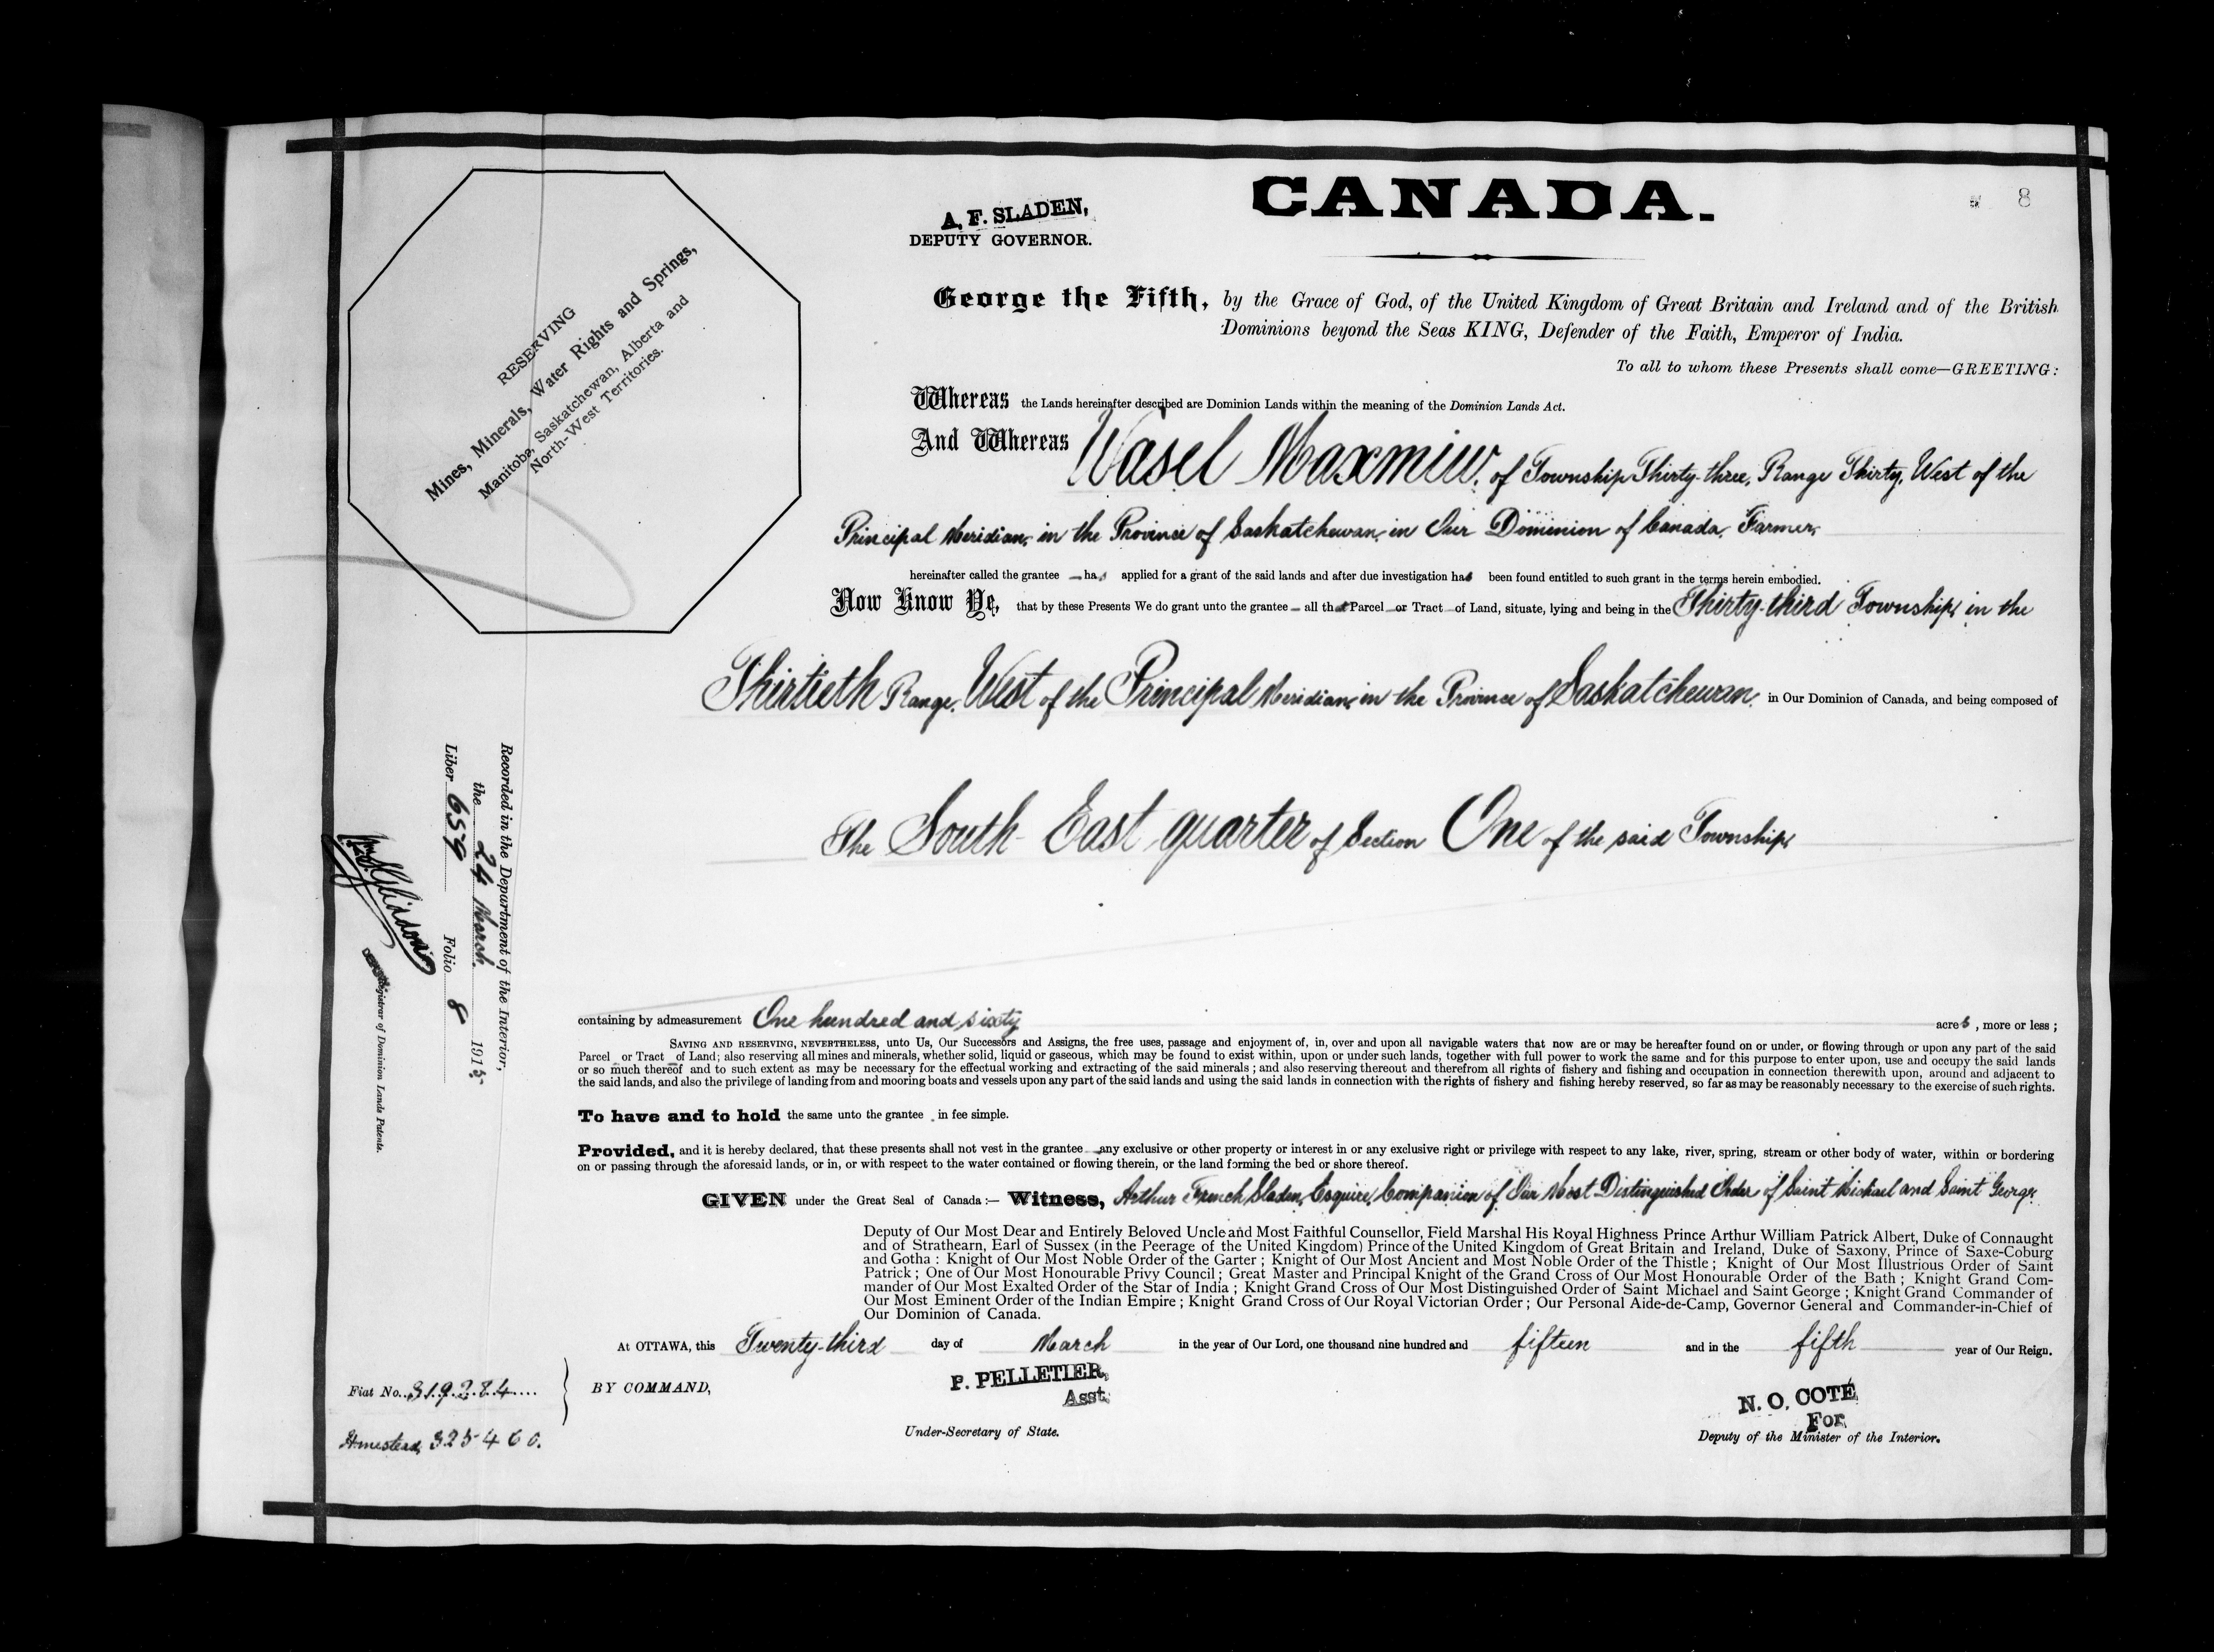 CANADA.
8
A. F. SLADEN,
DEPUTY GOVERNOR.
RESERVING
Mines, Minerals, Water Rights and Springs,
Manitoba, Saskatchewan, Alberta and
North-West Territories.
George the Fifth, by the Grace of God, of the United Kingdom of Great Britain and Ireland and of the British
Dominions beyond the Seas KING, Defender of the Faith, Emperor of India.
To all to whom these Presents shall come—GREETING:
Whereas the Lands hereinafter described are Dominion Lands within the meaning of the Dominion Lands Act.
And Whereas Wasel Maxmiw, of Township Thirty-three, Range Thirty, West of the
Principal Meridian, in the Province of Saskatchewan, in Our Dominion of Canada, Farmer,
hereinafter called the grantee has applied for a grant of the said lands and after due investigation has been found entitled to such grant in the terms herein embodied.
Now Know Ye, that by these Presents We do grant unto the grantee all that Parcel or Tract of Land, situate, lying and being in the Thirty-third Township, in the
Thirtieth Range, West of the Principal Meridian, in the Province of Saskatchewan, in Our Dominion of Canada, and being composed of
The South East quarter of Section One of the said Township,
containing by admeasurement One hundred and sixty acres, more or less;
SAVING AND RESERVING, NEVERTHELESS, unto Us, Our Successors and Assigns, the free uses, passage and enjoyment of, in, over and upon all navigable waters that now are or may be hereafter found on or under, or flowing through or upon any part of the said
Parcel or Tract of Land; also reserving all mines and minerals, whether solid, liquid or gaseous, which may be found to exist within, upon or under such lands, together with full power to work the same and for this purpose to enter upon, use and occupy the said lands
or so much thereof and to such extent as may be necessary for the effectual working and extracting of the said minerals; and also reserving thereout and therefrom all rights of fishery and fishing and occupation in connection therewith upon, around and adjacent to
the said lands, and also the privilege of landing from and mooring boats and vessels upon any part of the said lands and using the said lands in connection with the rights of fishery and fishing hereby reserved, so far as may be reasonably necessary to the exercise of such rights.
To have and to hold the same unto the grantee in fee simple.
Provided, and it is hereby declared, that these presents shall not vest in the grantee any exclusive or other property or interest in or any exclusive right or privilege with respect to any lake, river, spring, stream or other body of water, within or bordering
on or passing through the aforesaid lands, or in, or with respect to the water contained or flowing therein, or the land forming the bed or shore thereof.
GIVEN under the Great Seal of Canada:— Witness, Arthur French Sladen, Esquire, Companion of Our Most Distinguished Order of Saint Michael and Saint George,
Deputy of Our Most Dear and Entirely Beloved Uncle and Most Faithful Counsellor, Field Marshal His Royal Highness Prince Arthur William Patrick Albert, Duke of Connaught
and of Strathearn, Earl of Sussex (in the Peerage of the United Kingdom) Prince of the United Kingdom of Great Britain and Ireland, Duke of Saxony, Prince of Saxe-Coburg
and Gotha: Knight of Our Most Noble Order of the Garter; Knight of Our Most Ancient and Most Noble Order of the Thistle; Knight of Our Most Illustrious Order of Saint
Patrick; One of Our Most Honourable Privy Council; Great Master and Principal Knight of the Grand Cross of Our Most Honourable Order of the Bath; Knight Grand Com-
mander of Our Most Exalted Order of the Star of India; Knight Grand Cross of Our Most Distinguished Order of Saint Michael and Saint George; Knight Grand Commander of
Our Most Eminent Order of the Indian Empire; Knight Grand Cross of Our Royal Victorian Order; Our Personal Aide-de-Camp, Governor General and Commander-in-Chief of
Our Dominion of Canada.
At OTTAWA, this Twenty-third day of March in the year of Our Lord, one thousand nine hundred and fifteen and in the fifth year of Our Reign.
BY COMMAND,
P. PELLETIER,
Asst.
Under-Secretary of State.
N. O. COTÉ
For
Deputy of the Minister of the Interior.
Fiat No. 319284
Homestead, 325460.
Recorded in the Department of the Interior,
the 24 March, 1915,
Liber 659 Folio 8
Registrar of Dominion Lands Patents.